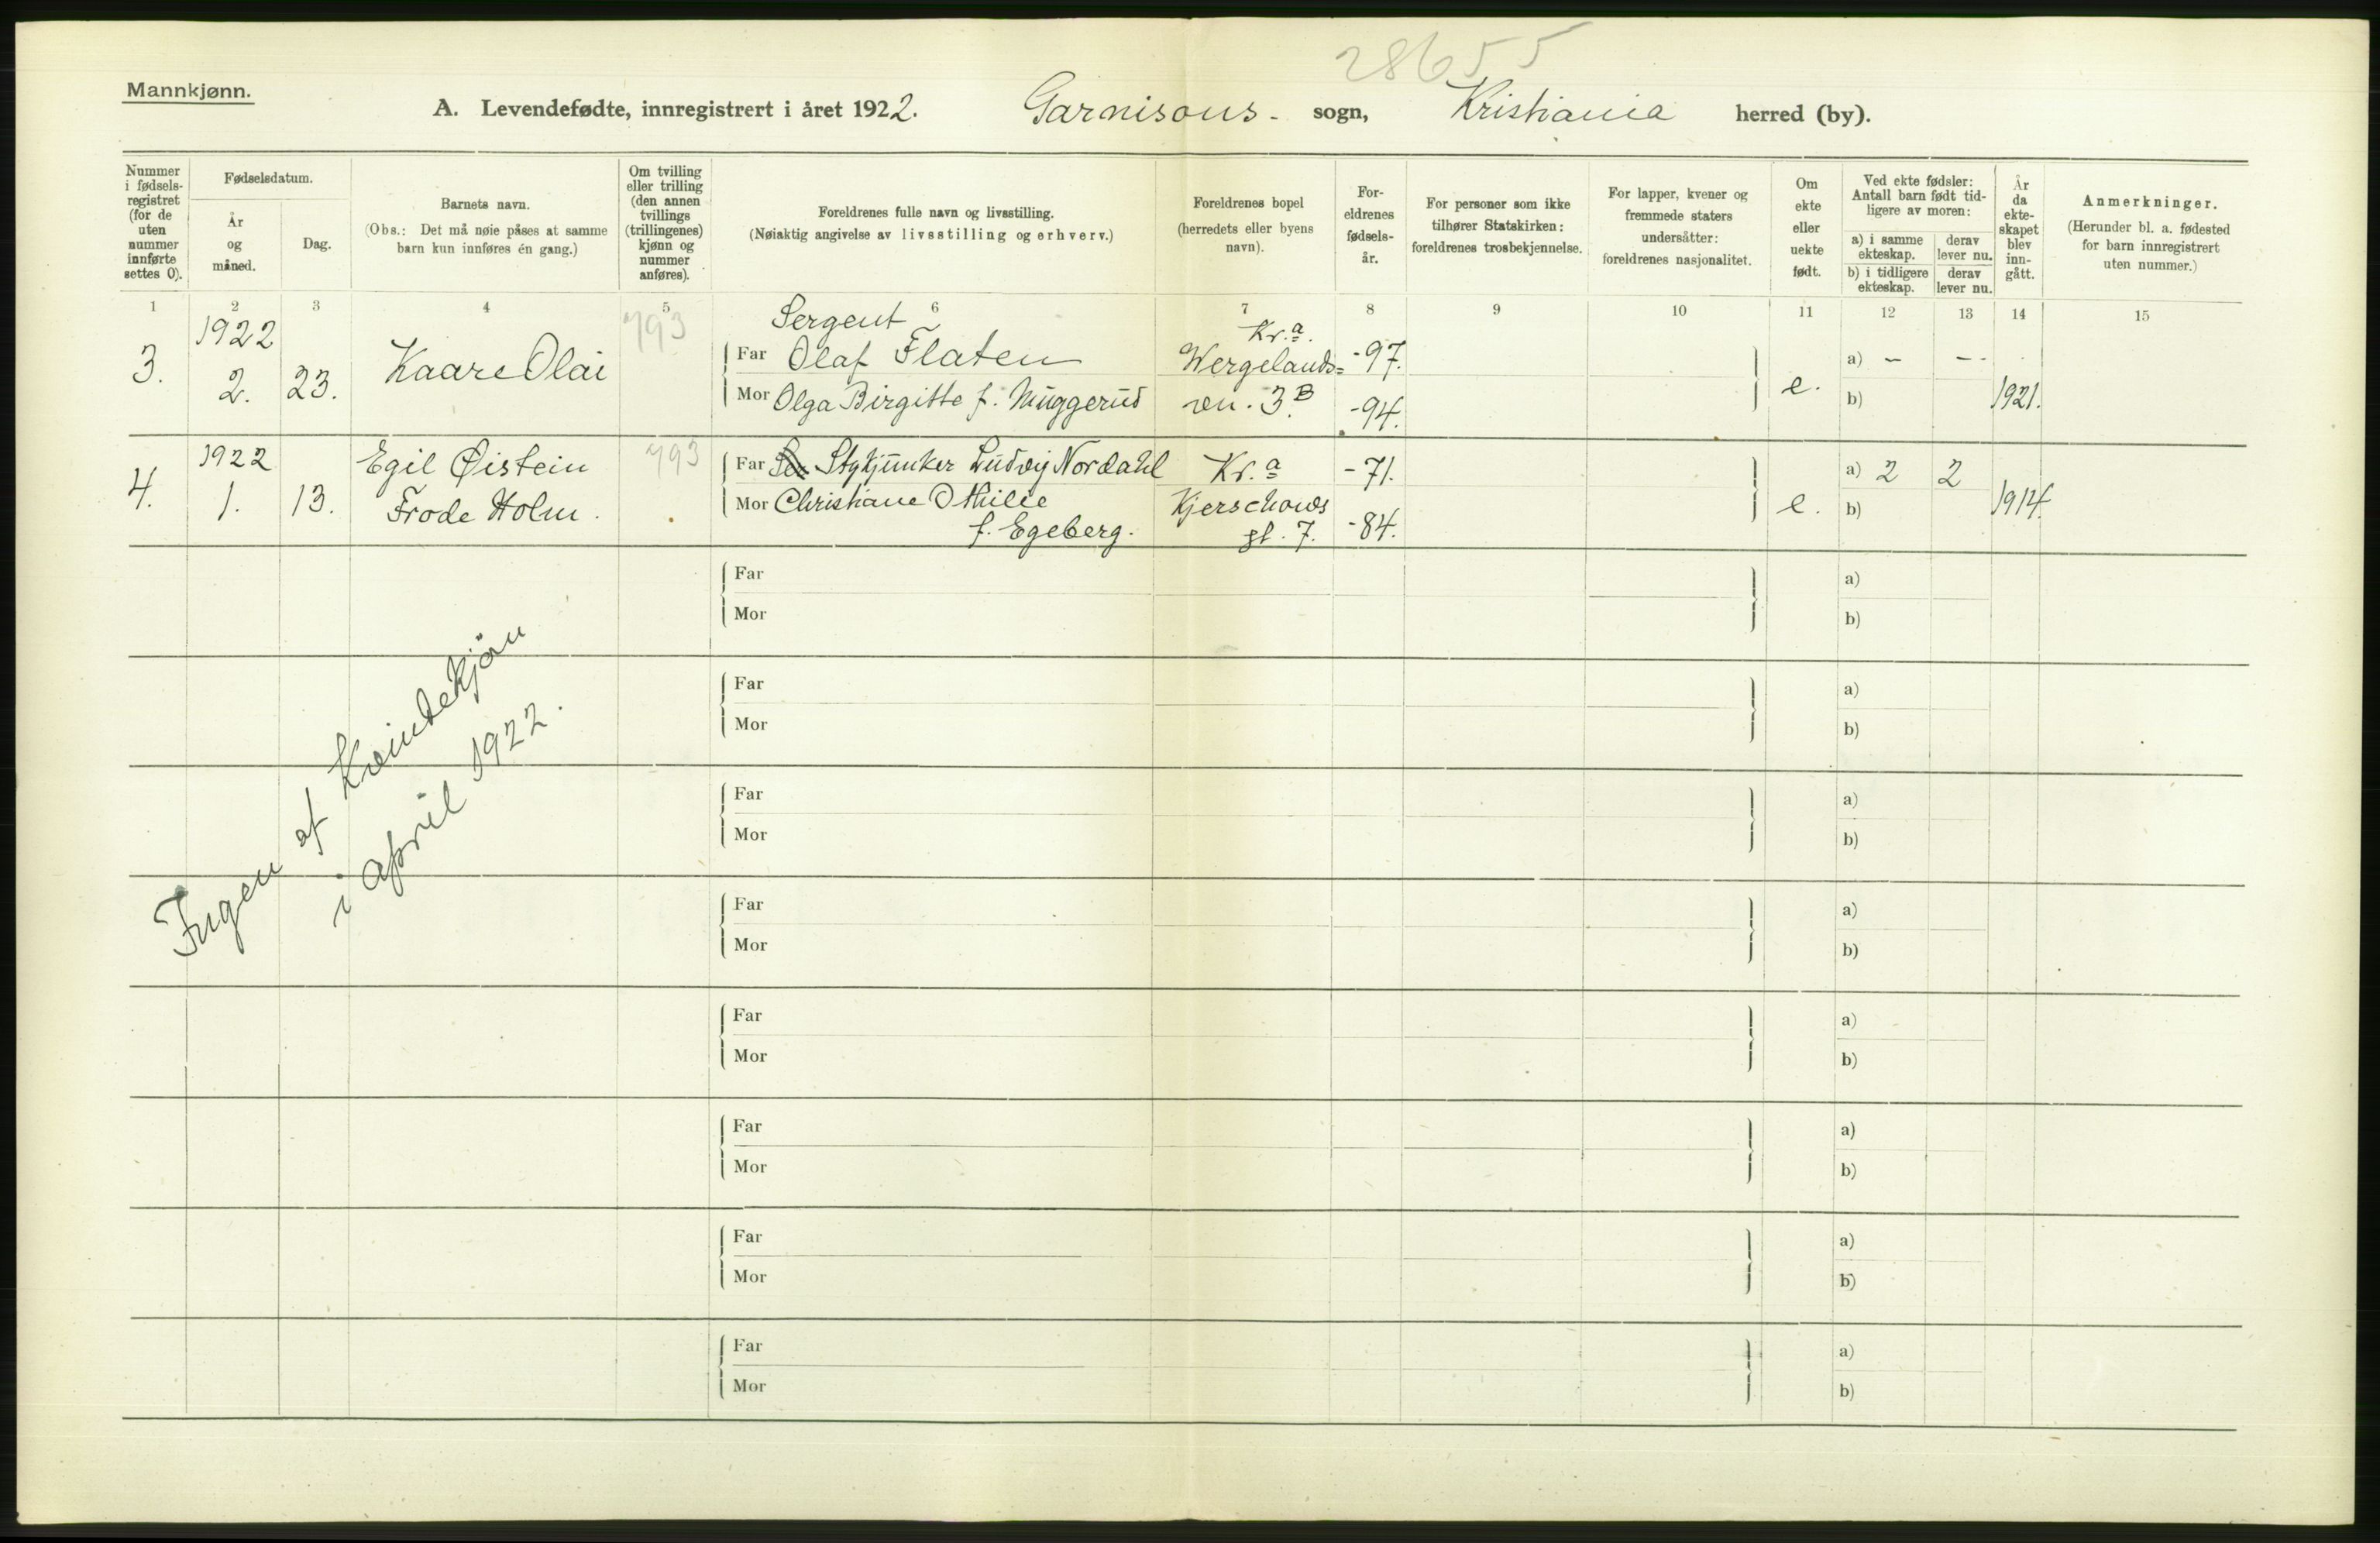 28655
Mannkjønn.
A. Levendefødte, innregistrert i året 1922. Garnisons- sogn, Kristiania herred (by).
Nummer i fødsels-registret (for de uten nummer innførte settes 0).
Fødselsdatum.
År og måned.
Dag.
Barnets navn.
(Obs.: Det må nøie påses at samme barn kun innføres én gang.)
Om tvilling eller trilling (den annen tvillings (trillingenes) kjønn og nummer anføres).
Foreldrenes fulle navn og livsstilling.
(Nøiaktig angivelse av livsstilling og erhverv.)
Foreldrenes bopel
(herredets eller byens navn).
For-eldrenes fødsels-år.
For personer som ikke tilhører Statskirken: foreldrenes trosbekjennelse.
For lapper, kvener og fremmede staters undersåtter: foreldrenes nasjonalitet.
Om ekte eller uekte født.
Ved ekte fødsler: Antall barn født tid-ligere av moren:
a) i samme ekteskap.
derav lever nu.
b) i tidligere ekteskap.
derav lever nu.
År da ekte-skapet blev inn-gått.
Anmerkninger.
(Herunder bl. a. fødested for barn innregistrert uten nummer.)
1 2 3 4 5 6 7 8 9 10 11 12 13 14 15
3. 1922 2. 23. Kaare Olai 793
Sergent
Far Olaf Flaten
Mor Olga Birgitte f. Muggerud
Kr.a.
Wergelands=
vn. 3B.
-97.
-94.
e. a) - -
b)
1921.
4. 1922 1. 13. Egil Øistein
Frode Holm.
793
Far Stykjunker Ludvig Nordahl
Mor Christiane Othilie
f. Egeberg.
Kr.a
Kjerschows
gt. 7.
-71.
-84.
e. a) 2 2
b)
1914.
Far a)
Mor b)
Far a)
Mor b)
Far a)
Mor b)
Far a)
Mor b)
Far a)
Mor b)
Far a)
Mor b)
Far a)
Mor b)
Far a)
Mor b)
Ingen af Kvindekjøn
i april 1922.